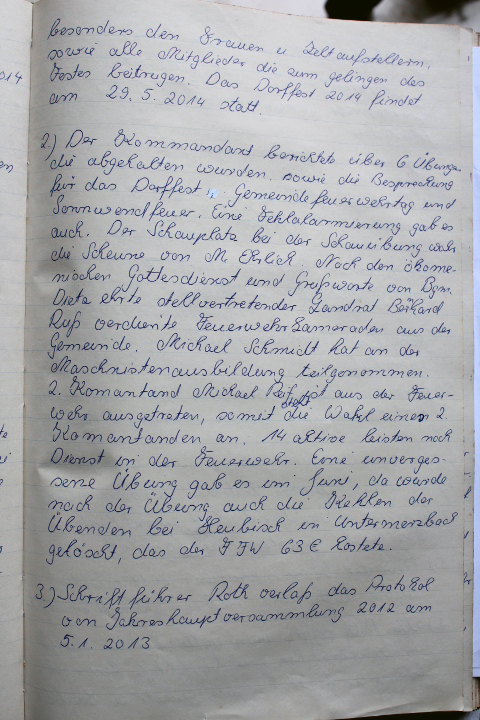 besonders den Frauen u. Zeltaufstellern,
sowie alle Mitglieder die zum gelingen des
Festes beitrugen. Das Dorffest 2014 findet
am 29.5.2014 statt.
2.) Der Kommandant berichtete über 6 Übungen
die abgehalten wurden. sowie die Besprechung
für das Dorffest, Gemeindefeuerwehrtag und
Sonnwendfeuer. Eine Fehlalarmierung gab es
auch. Der Schauplatz bei der Schauübung wahr
die Scheune von M. Ehrlich. Nach den ökome-
nischen Gottesdienst und Grußworte von Bgm.
Dietz ehrte stellvertretender Landrat
Ruß verdiente Feuerwehrkameraden aus der
Gemeinde. Michael Schmidt hat an der
Maschnistenausbildung teilgenommen.
2. Komantand Michael ist aus der Feuer-
wehr ausgetreten, somit steht die Wahl einen 2.
Komantanden an. 14 aktive leisten noch
Dienst in der Feuerwehr. Eine unverges-
sene Übung gab es im Juni, da wurde
nach der Übung auch die Kehlen der
Übenden bei Heubisch in Untermerzbach
gelöscht, das der FFW 63 € kostete.
3.) Schriftführer Roth verlaß das Protokol
von Jahreshauptversammlung 2012 am
5.1.2013
014